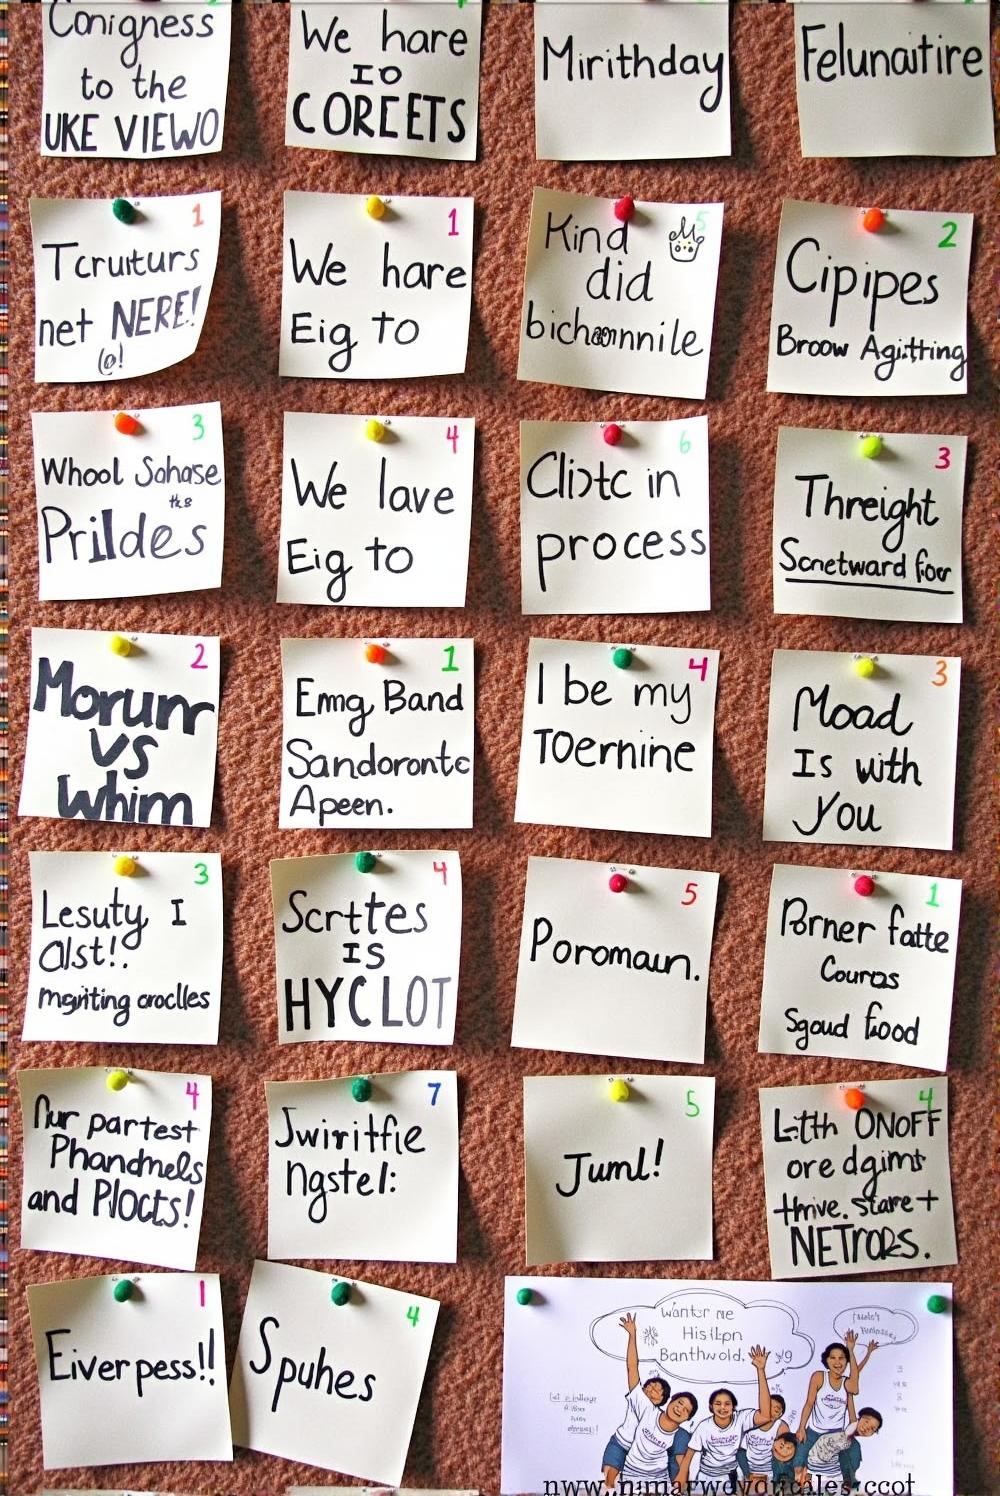 Conigness
to the
UKE VIEWO
We hare
IO
COREETS
Mirithday
1
Tcruiturs
net NERE!
1
We hare
Eig to
5
Kind
did
2
Cipipes
Broow Agitting
3
Whool Sahase
Prildes
4
We lave
Eig to
6
in
process
3
Threight
Scnetward for
2
Morunr
VS
Whim
1
Emng Band
Sandorontc
Apeen.
4
I be my
TOernine
3
Moad
Is with
You
3
Lesuty I
Olst!.
4
Scrttes
IS
HYCLOT
5
Poromaun.
1
Porner fatte
Couras
Sgoud food
4
partest
Phandmels
and Plocts!
7
Jwiritfie
ngstel:
5
Juml!
4
ONOFF
ore dgimt
thrive. stare +
NETrors.
1
Eiver pess!!
4
Spuhes
Wanter me
Hisilpn
Banthwold.